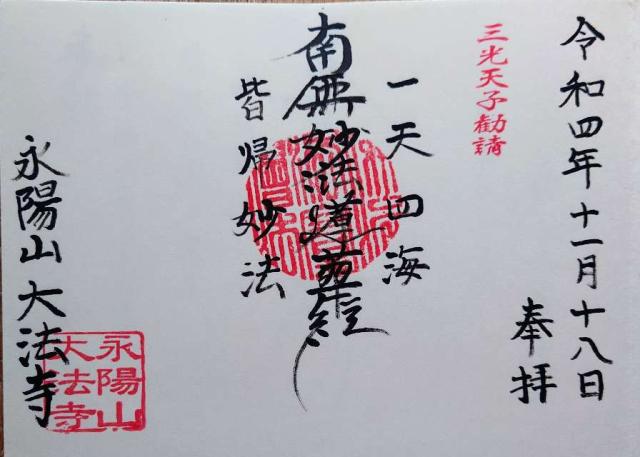 令和四年十一月十八日
奉拝
三光天子勧請
一天四海
南無妙法蓮華経
皆帰妙法
永陽山大法寺
永陽山
大法寺